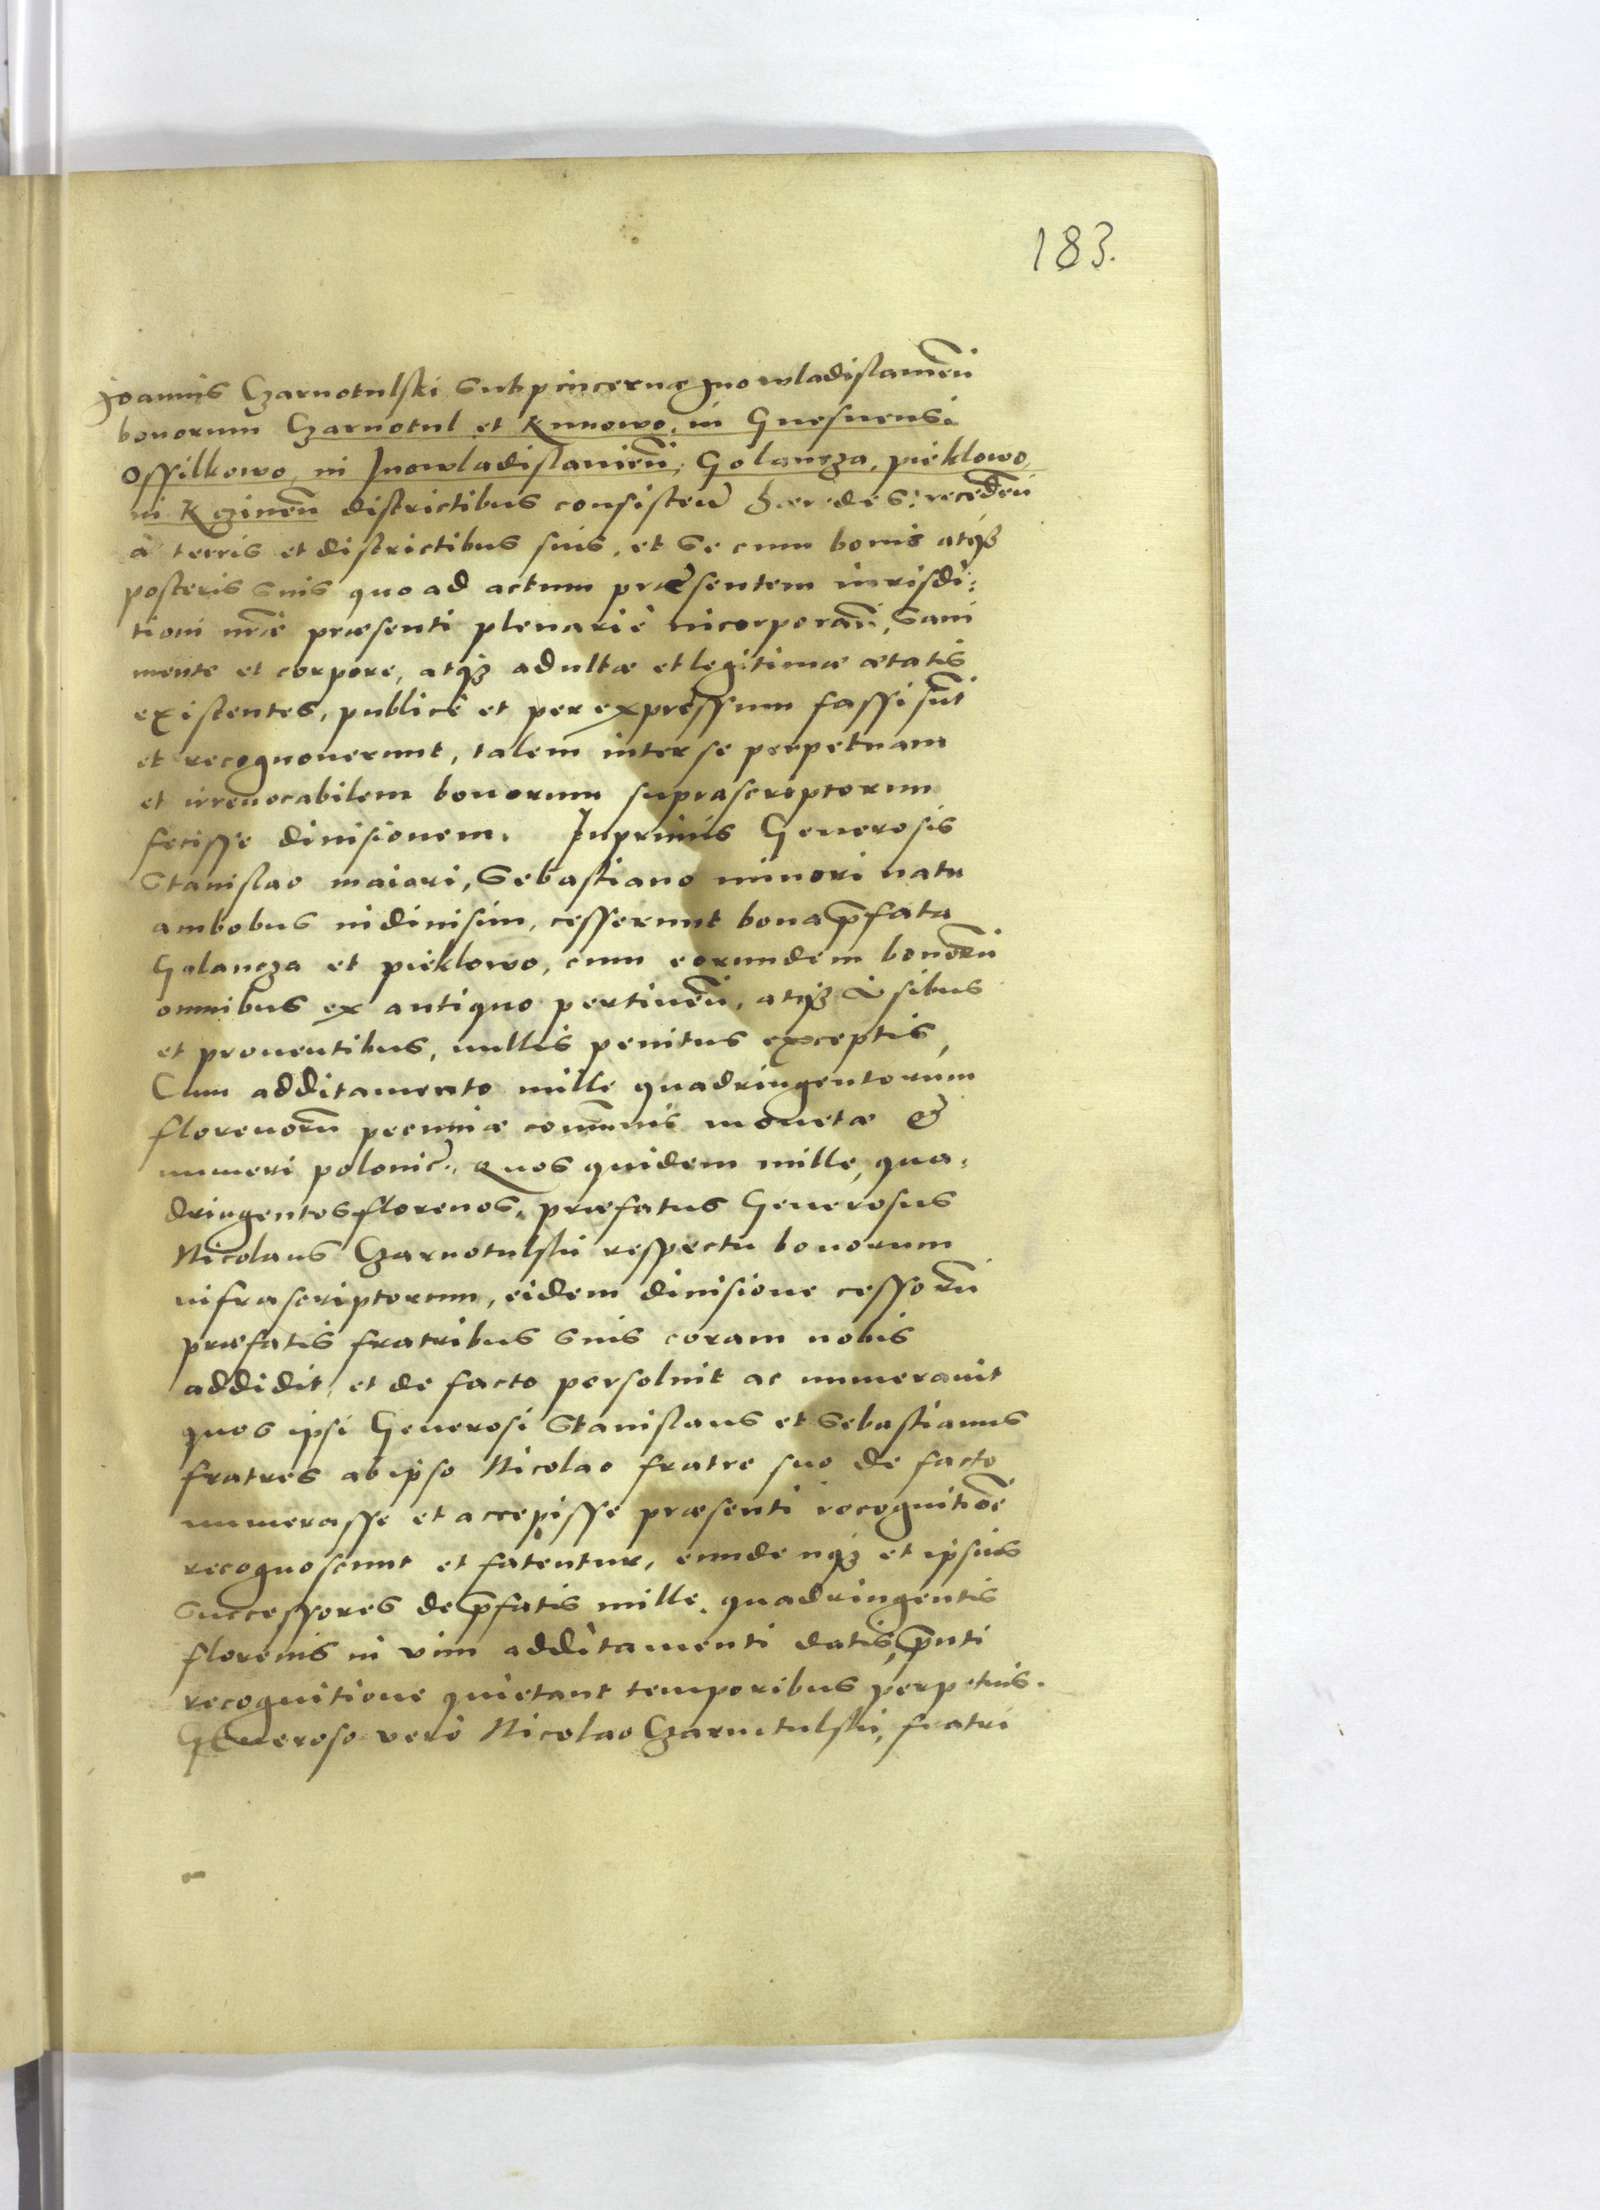 183.
Joannis Czarnotulski Subpincernæ Juowladislauień
bonorum Czarnotul et Kunowo, in Gnesnensi
Ossilkowo, in Jnowladislauień, Golancza, pieklowo,
in Kcinień districtibus consisteñ hæredes: recedeń
à terris et districtibus suis, et se cum bonis atqȝ
posteris suis quo ad actum præsentem iurisdi:
tioni nr̃æ præsenti plenariè incorporań, Sani
mente et corpore, atqȝ adultæ et legitimæ ætatis
existentes, publicè et per expressum fassi sũt
et recognouerunt, talem inter se perpetuam
et irreuocabilem bonorum suprascriptorum
fecisse diuisionem. Inprimis Generosis
Stanislao maiori, Sebastiano minori natu
ambobus indiuisim, cesserunt bona p̃fata
Golancza et pieklowo, cum eorundem bonorũ
omnibus ex antiquo pertineń, atqȝ vsibus
et prouentibus, nullis penitus exceptis,
Cum additamento mille quadringentorum
florenorũ pecuniæ com̃unis monetæ &
numeri polonic̃. Quos quidem mille, qua:
dringentos florenos, præfatus Generosus
Nicolaus Czarnotulski respectu bonorum
infrascriptorum, eidem diuisione cessorũ
præfatis fratribus suis coram nobis
addidit, et de facto persoluit ac numerauit
quos ipsi Generosi Stanislaus et Sebastianus
fratres ab ipso Nicolao fratre suo de facto
numerasse et accepisse præsenti recognitioẽ
recognoscunt et fatentur, eundemqȝ et ipsius
Successores de p̃fatis mille quadringentis
florenis in vim additamenti datis, p̃nti
recognitione quietant temporibus perpetuis.
Generoso verò Nicolao Czarnotulski, fratri